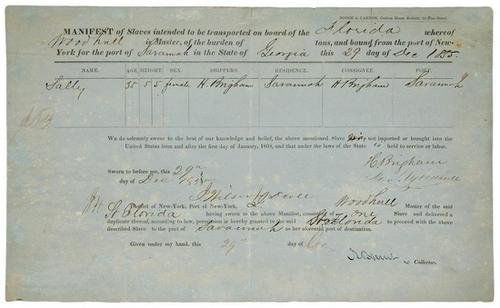 MANIFEST of Slaves intended to be transported on board of the Florida whereof
Woodhull is Master, of the burden of tons, and bound from the port of New-
York for the port of Savannah in the State of Georgia this 29 day of Dec 1855.
NAME. AGE. HEIGHT. SEX. SHIPPERS. RESIDENCE. CONSIGNEE. PORT.
Sally 35 5 5 female H. Brigham Savannah H Brigham Savannah
We do solemnly swear to the best of our knowledge and belief, the above mentioned Slave not imported or brought into the
United States after the first day of January, 1808, and that under the laws of the State to held to service or labor.
Sworn to before me, this 29
H Brigham
day of Dec
District of New-York, Port of New-York, Woodhull Master of the said
Florida having sworn to the above Manifest, consisting of one Slave and delivered a
duplicate thereof, according to law, permission is hereby granted to the said Florida to proceed with the above
described Slave to the port of Savannah as her aforesaid port of destination.
Given under my hand, this 29 day of Dec
Collector.